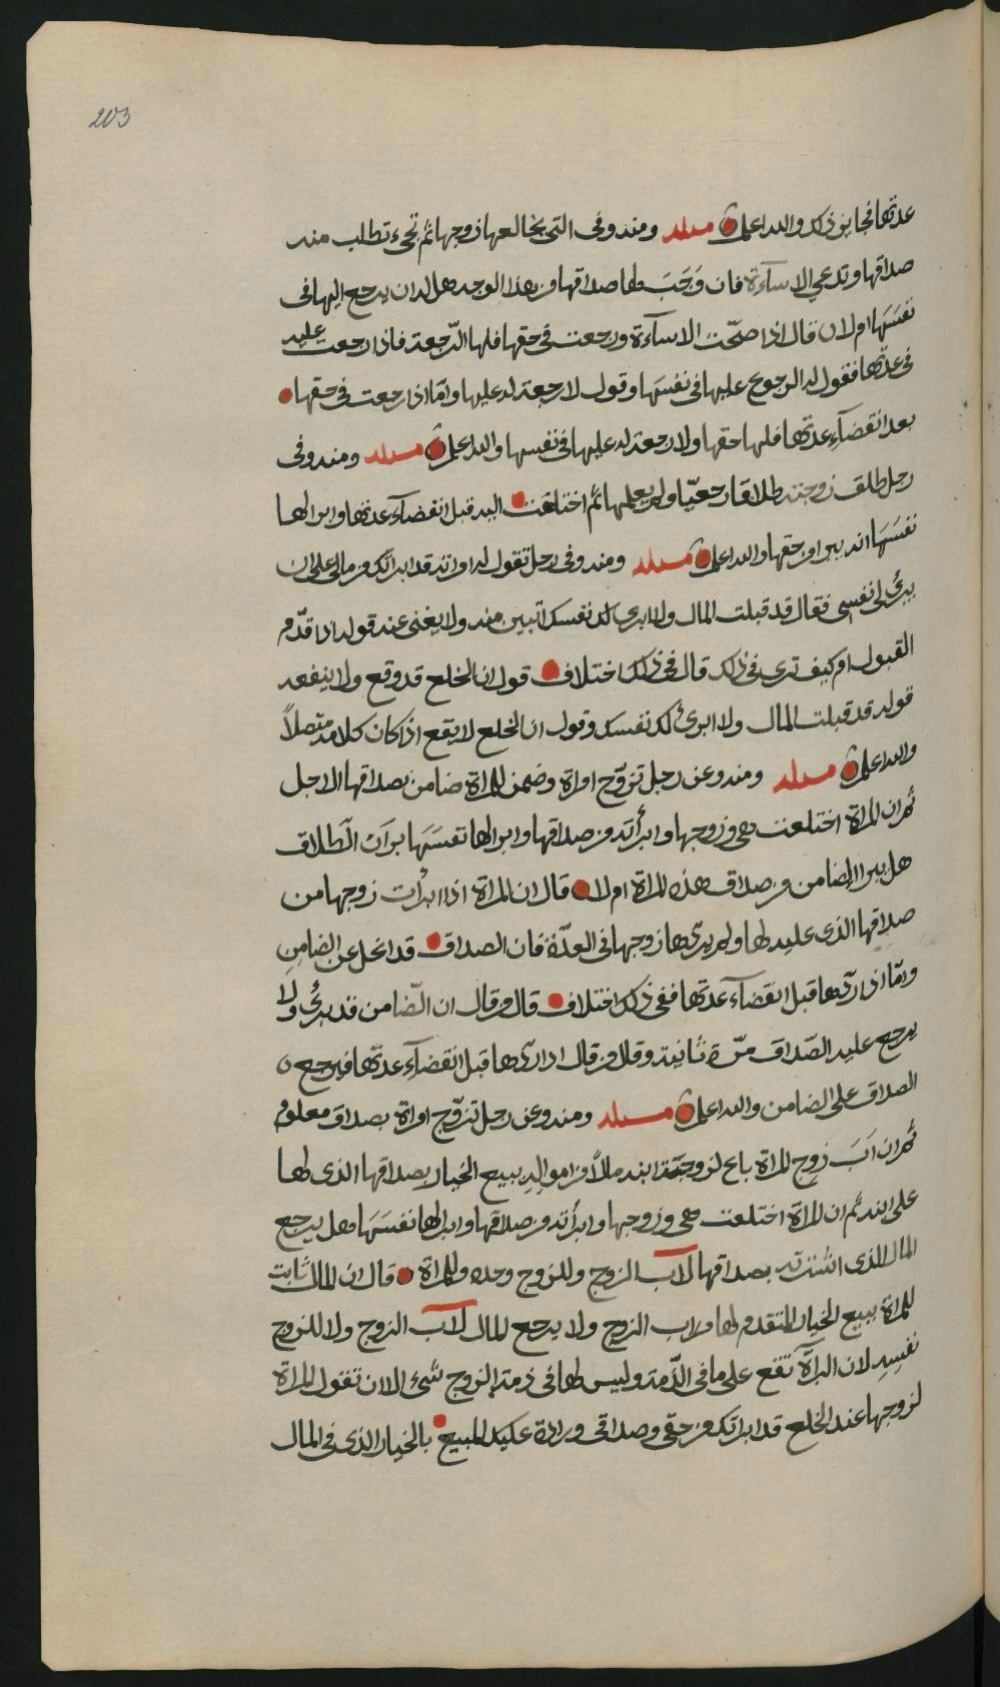 203
عدتها فجايز ذلك والله اعلم مسله ومنه وفي التي يخالعها زوجها ثم تجيء تطلب منه
صداقها وتدعي الاسآءة فان وَجَبَ لها صداقها من هذا الوجه هل له ان يرجع اليها في
نفسَهَا ام لا ن قال اذا صحّت الاسآءة ورجعت في حقها فلها الرّجعة فاذا رجعت عليه
في عدتها فقول له الرجوع عليها في نفسَها وقول لا رجعة له عليها وامّا اذا رجعت في حقها
بعد انقضآء عدتها فلها حقها ولا رجعة له عليها في نفسها والله اعلم مسله ومنه وفي
رجل طلق زوجته طلاقا رجعيّا ولم يعلمها ثم اختلعت اليه قبل انقضآء عدتها وابرا لها
نفسَهَا انه يبرا من حقها والله اعلم مسله ومنه وفي رجل تقول له امراته قد ابراتك من مالي على ان
تبرئ لي نفسي فقال قد قبلت المال ولا ابري لك نفسك اتبين منه ولا يغني عنه قوله اذا قدّم
القبول ام كيف ترى في ذلك قال في ذلك اختلاف قول ان الخلع قد وقع ولا ينفعه
قوله قد قبلت المال ولا ابرئ لك نفسك وقول ان الخلع لا يقع اذا كان كلامه متصلاً
والله اعلم مسله ومنه وعن رجل تزوّج امراة وضمن للمراة ضامن بصداقها الاجل
ثم ان المراة اختلعت هي وزوجها وابرأته من صداقها وابرا لها نفسَهَا برآن الطلاق
هل يبرا الضامن من صداق هذه المراة ام لا قال ان المراة اذا ابرأت زوجها من
صداقها الذي عليه لها ولم يردّها زوجها في العدّة فان الصداق قد انحل عن الضامن
وامّا اذا ردّها قبل انقضآء عدتها ففي ذلك اختلاف قال من قال ان الضامن قد برئ ولا
يرجع عليه الصّداق مرّة ثانية وقال من قال اذا ردّها قبل انقضآء عدتها فيرجع ه
الصداق على الضامن والله اعلم مسله ومنه وعن رجل تزوّج امراة بصداق معلوم
ثم ان اَبَ زوج المراة باع لزوجة ابنه مالاً من امواله ببيع الخيار بصداقها الذي لها
على ابنه ثم ان المراة اختلعت هي وزوجها وابرأته من صداقها وابرا لها نفسَهَا هل يرجع
المال الذي اشترته بصداقها لاب الزوج وللزوج وحده وللمراة قال ان المال ثابت
للمراة ببيع الخيار المتقدم لها من اب الزوج ولا يرجع المال لاب الزوج ولا للزوج
نفسِهِ لان البرآة تقع على ما في الذّمة وليس لها في ذمة الزوج شيء الا ان تقول المراة
لزوجها عند الخلع قد ابراتك من حقي وصداقي ورادة عليك المبيع بالخيار الذي في المال